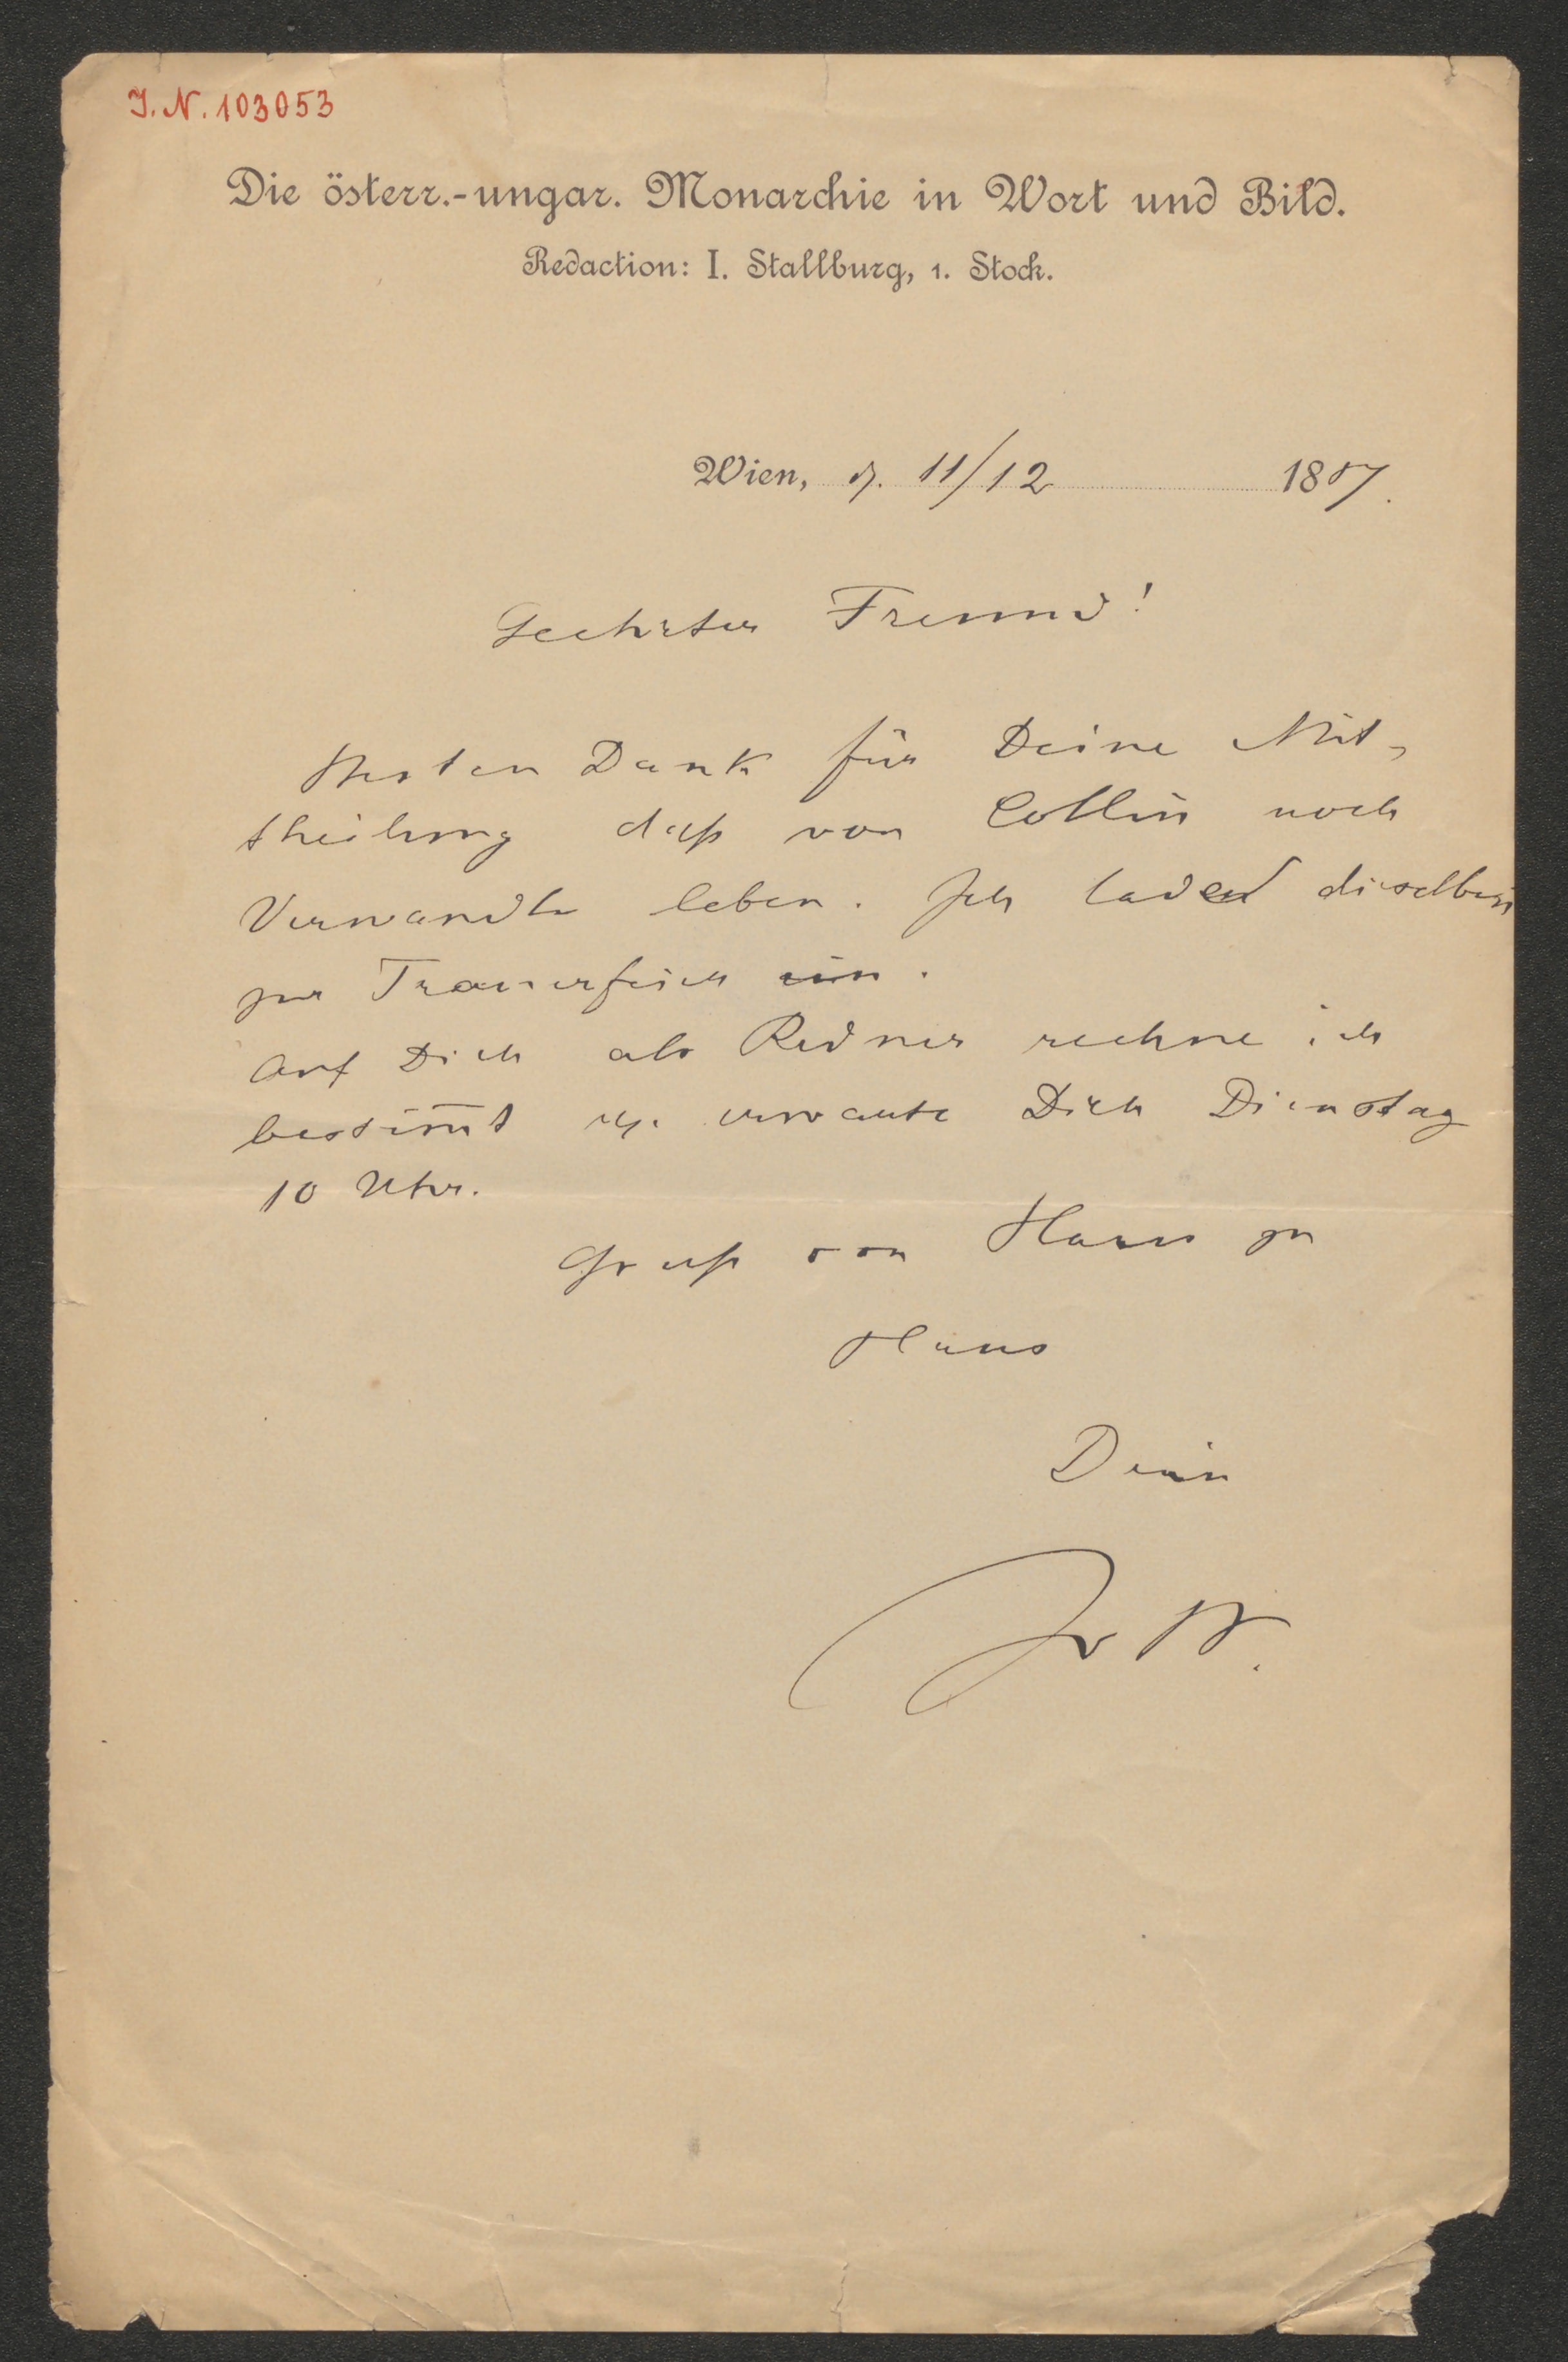 I. N. 103053
Die österr.-ungar. Monarchie in Wort und Bild.
Redaction: I. Stallburg, 1. Stock.
Wien, d. 11/12 1887.
Geehrter Freund!
Besten Dank für Deine Mit-
theilung daß von Collin noch
Verwandte leben. Ich lade dieselben
zur Trauerfeier ein.
Auf Dich als Redner rechne ich
bestim̅t u. erwarte Dich Dienstag
10 Uhr.
Gruß von Haus zu
Haus
Dein